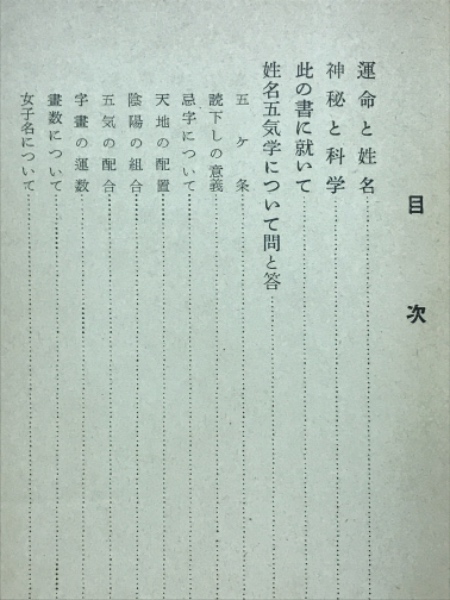 目次
運命と姓名
神秘と科学
此の書に就いて
姓名五気学について問と答
五ケ条
読下しの意義
忌字について
天地の配置
陰陽の組合
五気の配合
字畫の運数
畫数について
女子名について